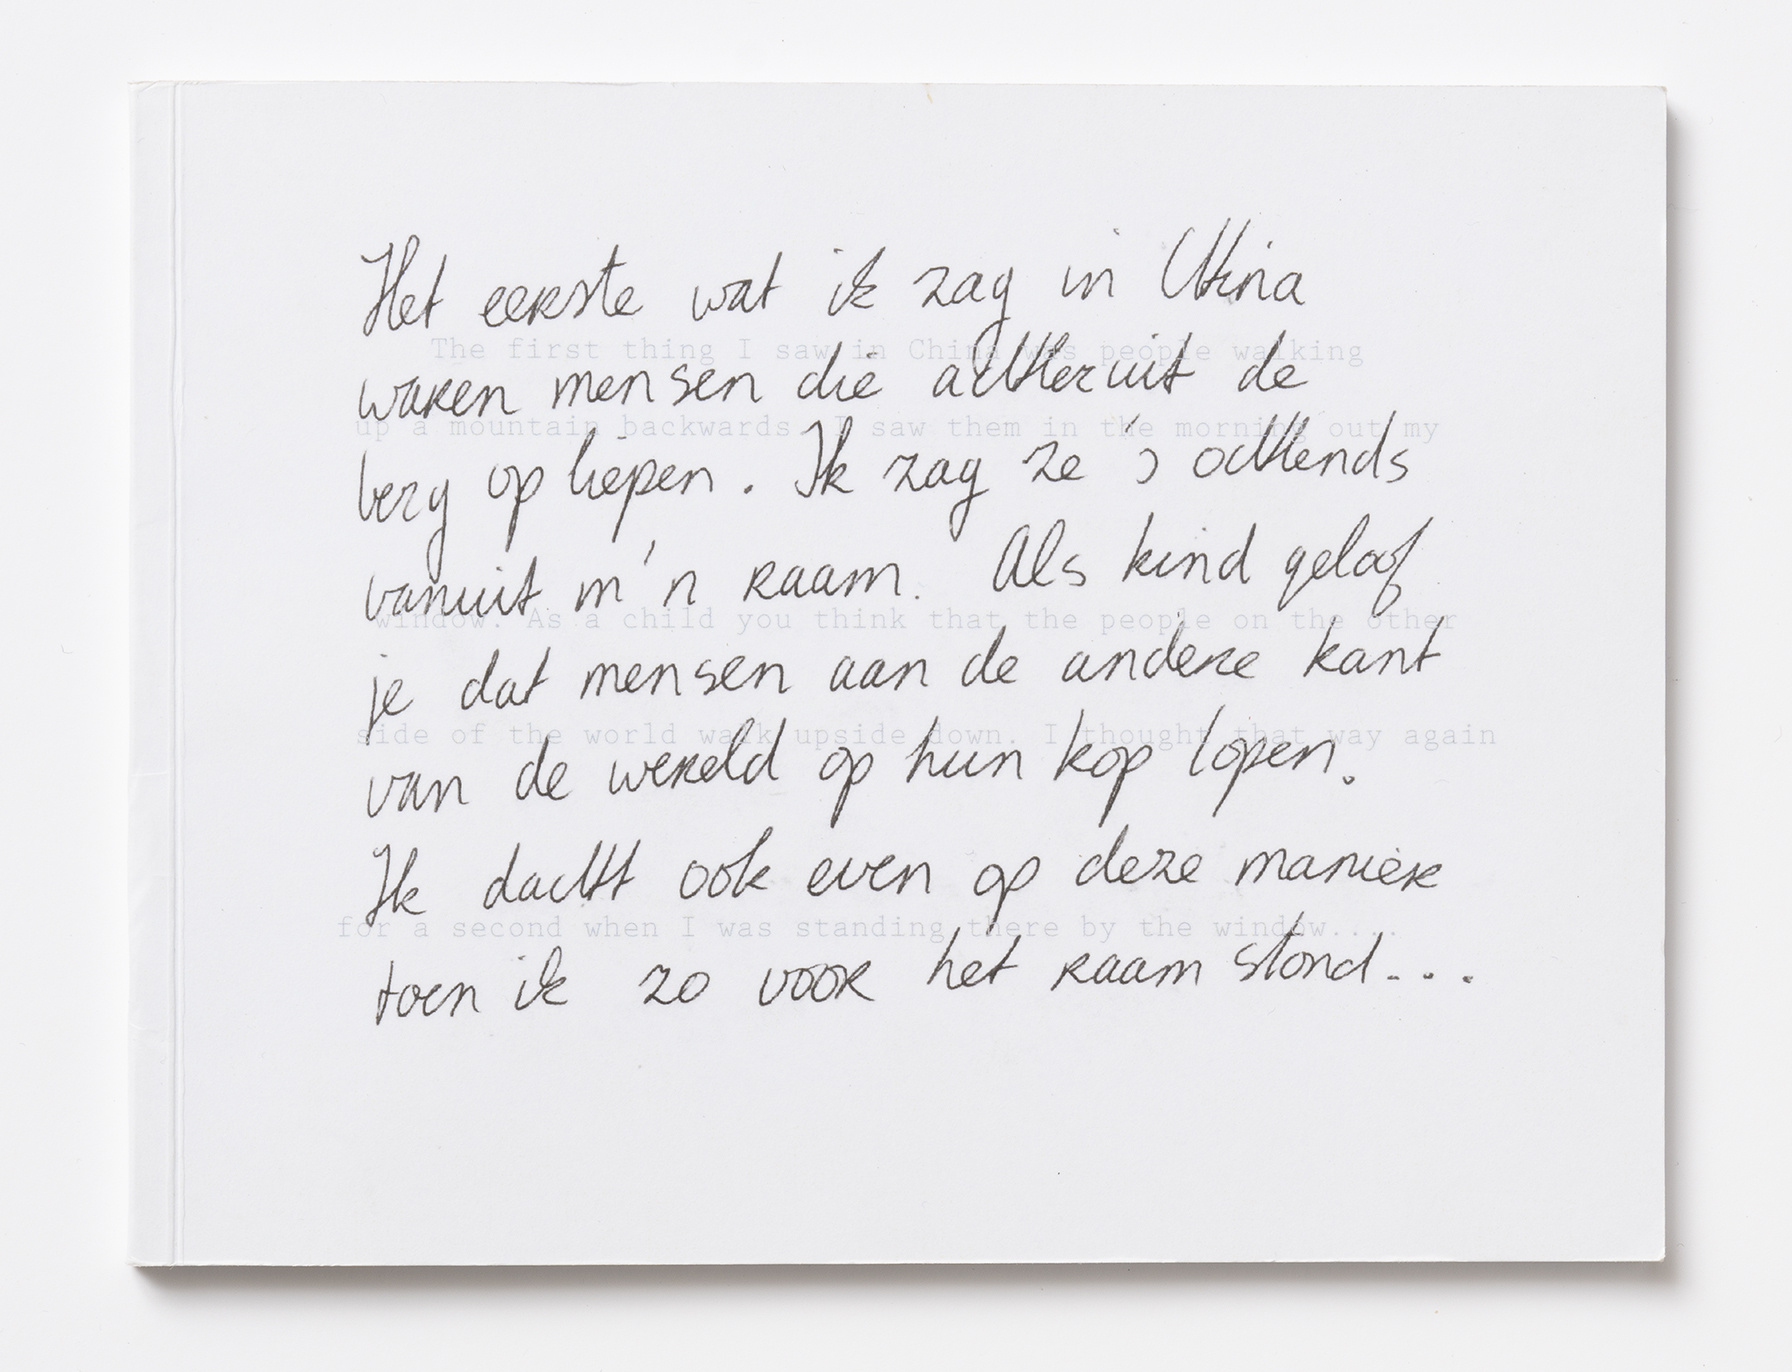 Het eerste wat ik zag in China
The first thing I saw in China was people walking
waren mensen die achteruit de
up a mountain backwards. I saw them in the morning out my
berg op liepen. Ik zag ze 's ochtends
vanuit m'n raam. Als kind geloof
window. As a child you think that the people on the other
je dat mensen aan de andere kant
side of the world walk upside down. I thought that way again
van de wereld op hun kop lopen.
Ik dacht ook even op deze manier
for a second when I was standing there by the window....
toen ik zo voor het raam stond...